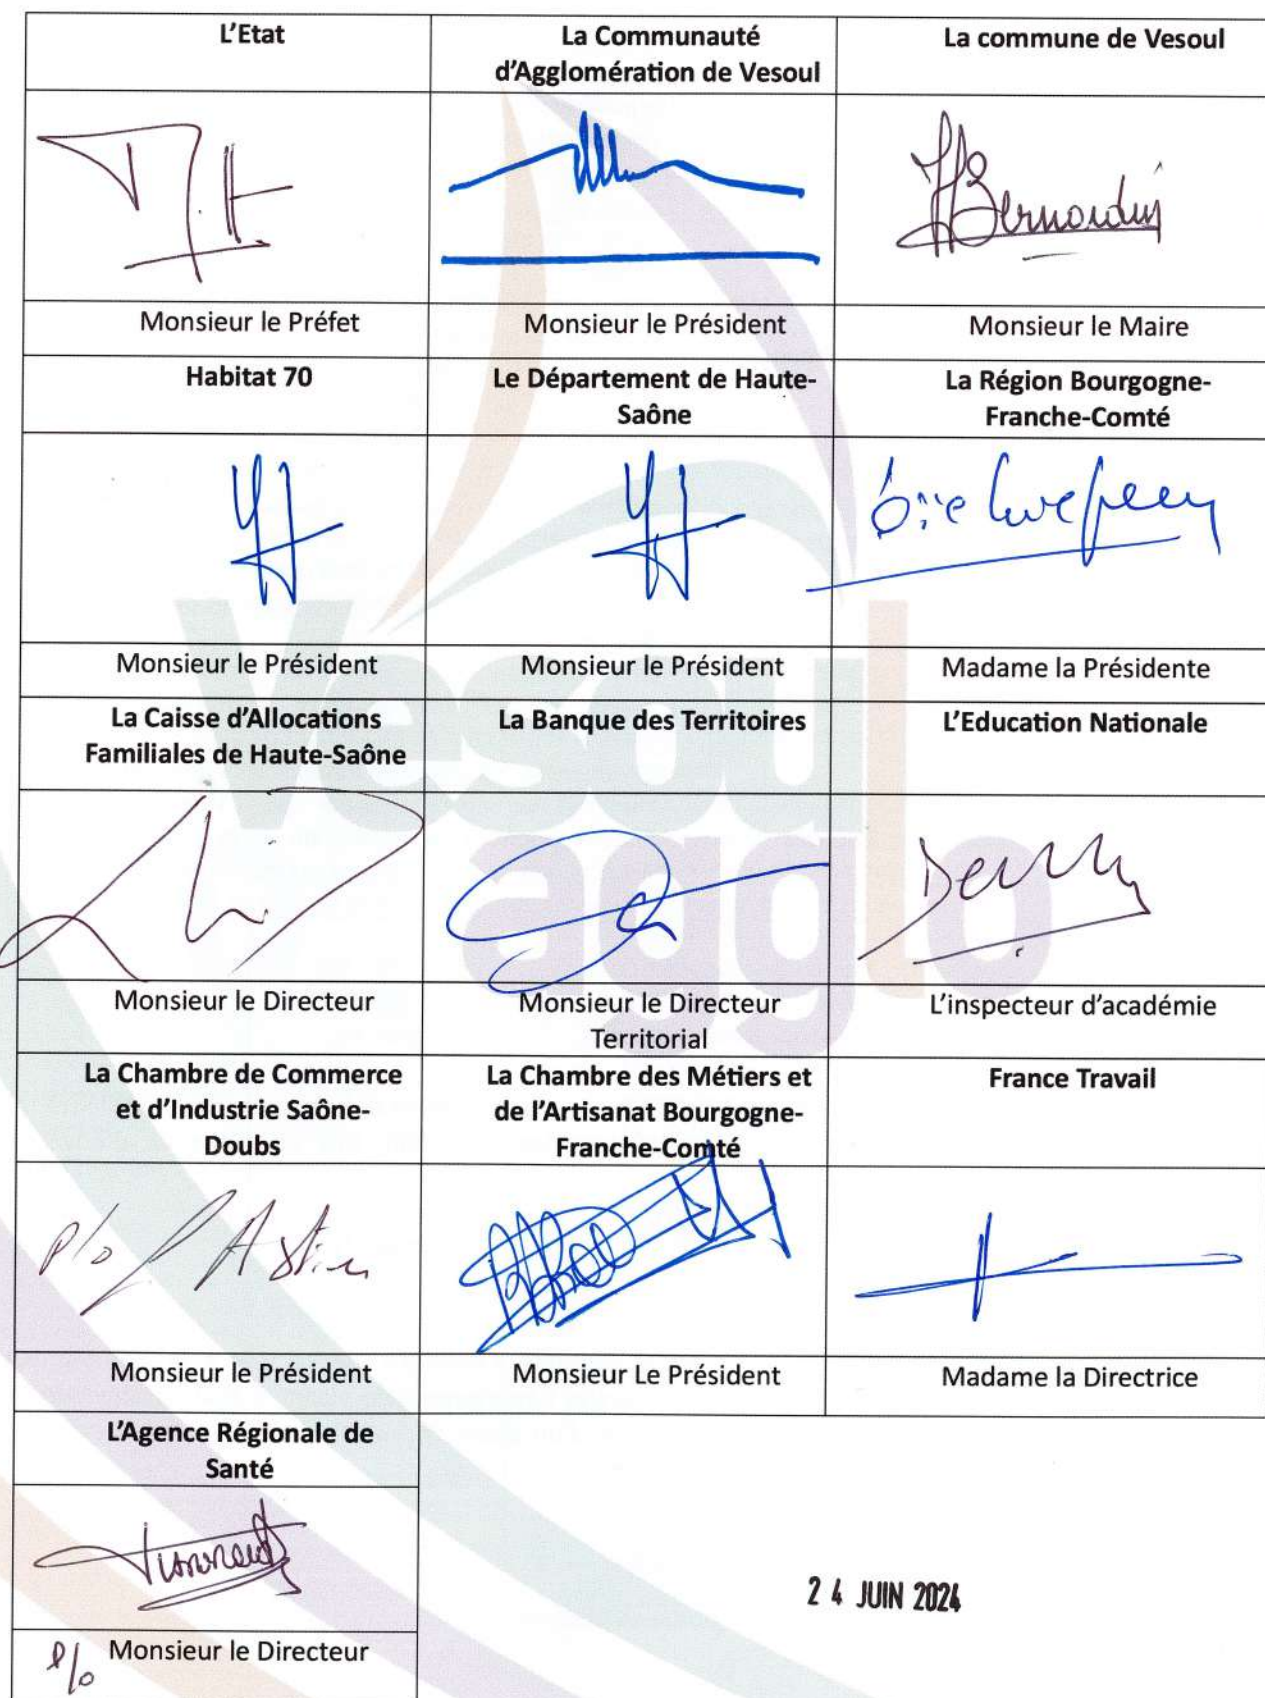 L'Etat
La Communauté
d'Agglomération de Vesoul
La commune de Vesoul
Bernardin
Monsieur le Préfet
Monsieur le Président
Monsieur le Maire
Habitat 70
Le Département de Haute-
Saône
La Région Bourgogne-
Franche-Comté
Monsieur le Président
Monsieur le Président
Madame la Présidente
La Caisse d'Allocations
Familiales de Haute-Saône
La Banque des Territoires
L'Education Nationale
Monsieur le Directeur
Monsieur le Directeur
Territorial
L'inspecteur d'académie
La Chambre de Commerce
et d'Industrie Saône-
Doubs
La Chambre des Métiers et
de l'Artisanat Bourgogne-
Franche-Comté
France Travail
P/o
Monsieur le Président
Monsieur Le Président
Madame la Directrice
L'Agence Régionale de
Santé
24 JUIN 2024
P/o Monsieur le Directeur
Vesoul
agglo